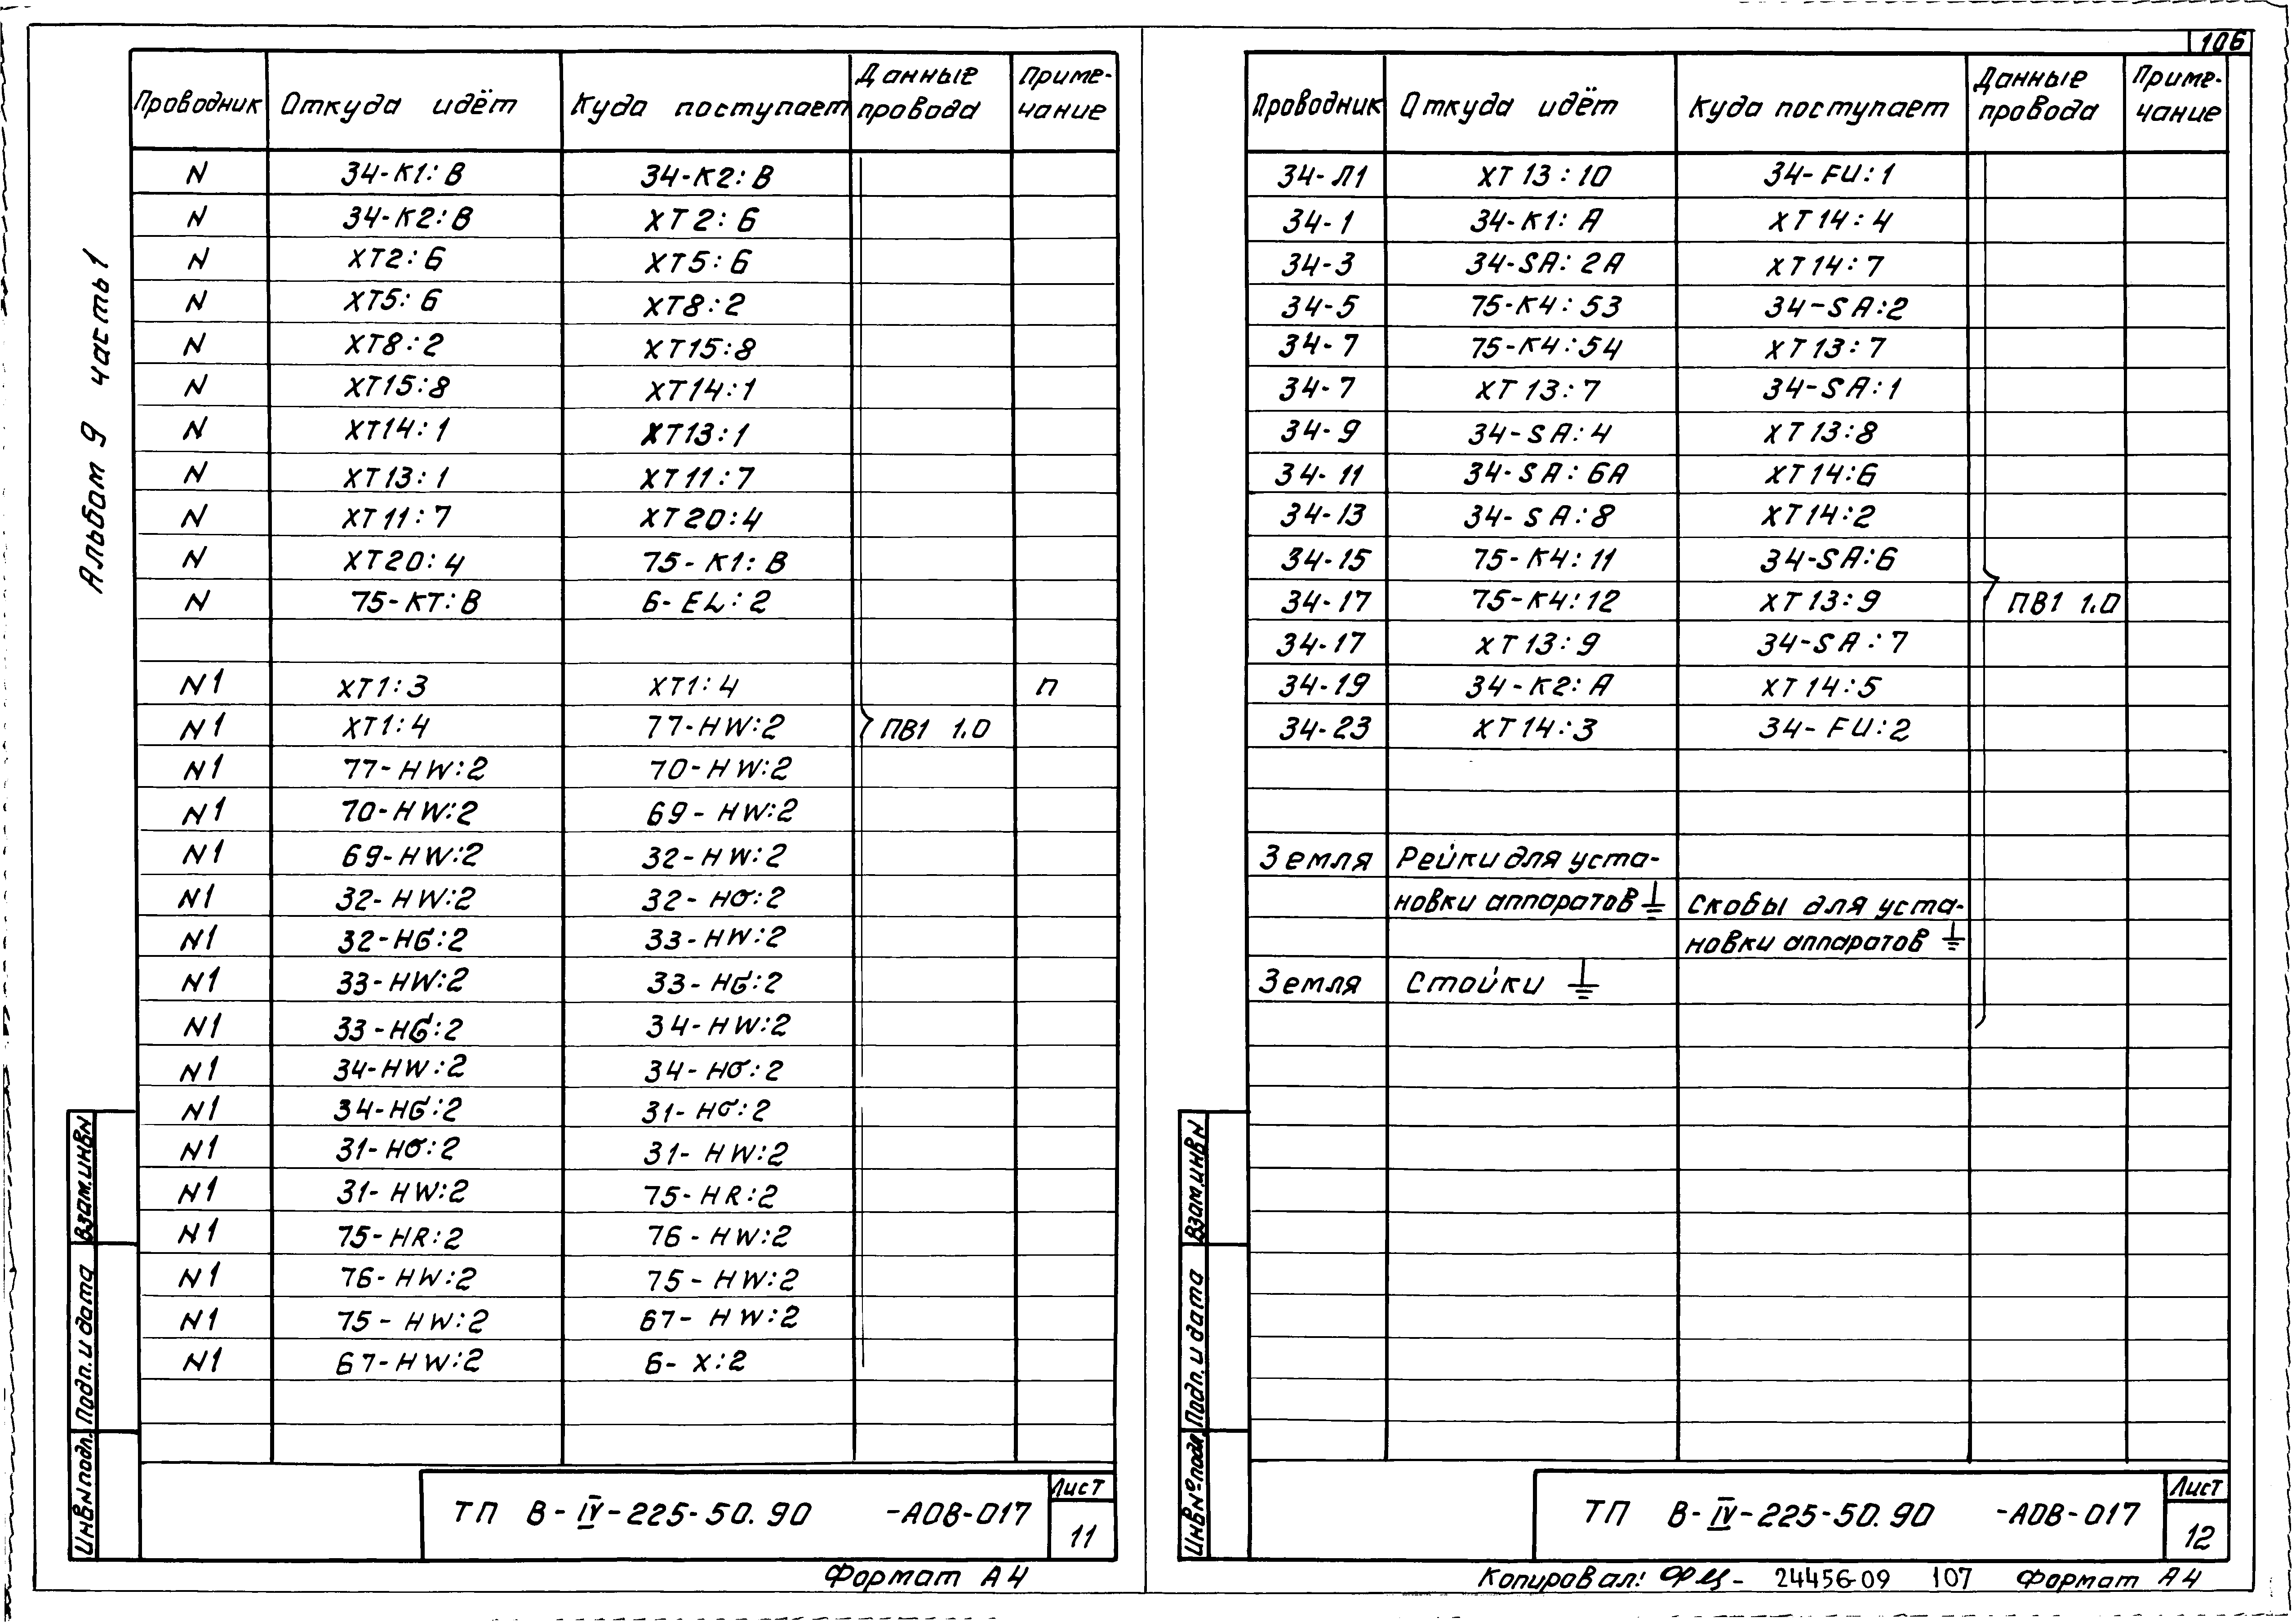 106
Альбом 9 часть 1
Проводник Откуда идёт Куда поступает Данные провода Примечание
N 34-К1:В 34-К2:В
N 34-К2:В ХТ2:6
N ХТ2:6 ХТ5:6
N ХТ5:6 ХТ8:2
N ХТ8:2 ХТ15:8
N ХТ15:8 ХТ14:1
N ХТ14:1 ХТ13:1
N ХТ13:1 ХТ11:7
N ХТ11:7 ХТ20:4
N ХТ20:4 75-К1:В
N 75-КТ:В 6-EL:2
N1 ХТ1:3 ХТ1:4 п
N1 ХТ1:4 77-HW:2 ПВ1 1.0
N1 77-HW:2 70-HW:2
N1 70-HW:2 69-HW:2
N1 69-HW:2 32-HW:2
N1 32-HW:2 32-HG:2
N1 32-HG:2 33-HW:2
N1 33-HW:2 33-HG:2
N1 33-HG:2 34-HW:2
N1 34-HW:2 34-HG:2
N1 34-HG:2 31-HG:2
N1 31-HG:2 31-HW:2
N1 31-HW:2 75-HR:2
N1 75-HR:2 76-HW:2
N1 76-HW:2 75-HW:2
N1 75-HW:2 67-HW:2
N1 67-HW:2 6-Х:2
Взам.инвN
Подп. и дата
ИнвNподл.
ТП В-IV-225-50.90 -АОВ-017
Лист
11
Формат А4
Проводник Откуда идёт Куда поступает Данные провода Примечание
34-Л1 ХТ13:10 34-FU:1
34-1 34-К1:А ХТ14:4
34-3 34-SA:2А ХТ14:7
34-5 75-К4:53 34-SA:2
34-7 75-К4:54 ХТ13:7
34-7 ХТ13:7 34-SA:1
34-9 34-SA:4 ХТ13:8
34-11 34-SA:6А ХТ14:6
34-13 34-SA:8 ХТ14:2
34-15 75-К4:11 34-SA:6
34-17 75-К4:12 ХТ13:9 ПВ1 1.0
34-17 ХТ13:9 34-SA:7
34-19 34-К2:А ХТ14:5
34-23 ХТ14:3 34-FU:2
Земля Рейки для уста-
новки аппаратов ⏚ Скобы для уста-
новки аппаратов ⏚
Земля Стойки ⏚
Взам.инвN
Подп. и дата
ИнвN°подл.
ТП В-IV-225-50.90 -АОВ-017
Лист
12
Копировал: 24456-09 107 Формат А4